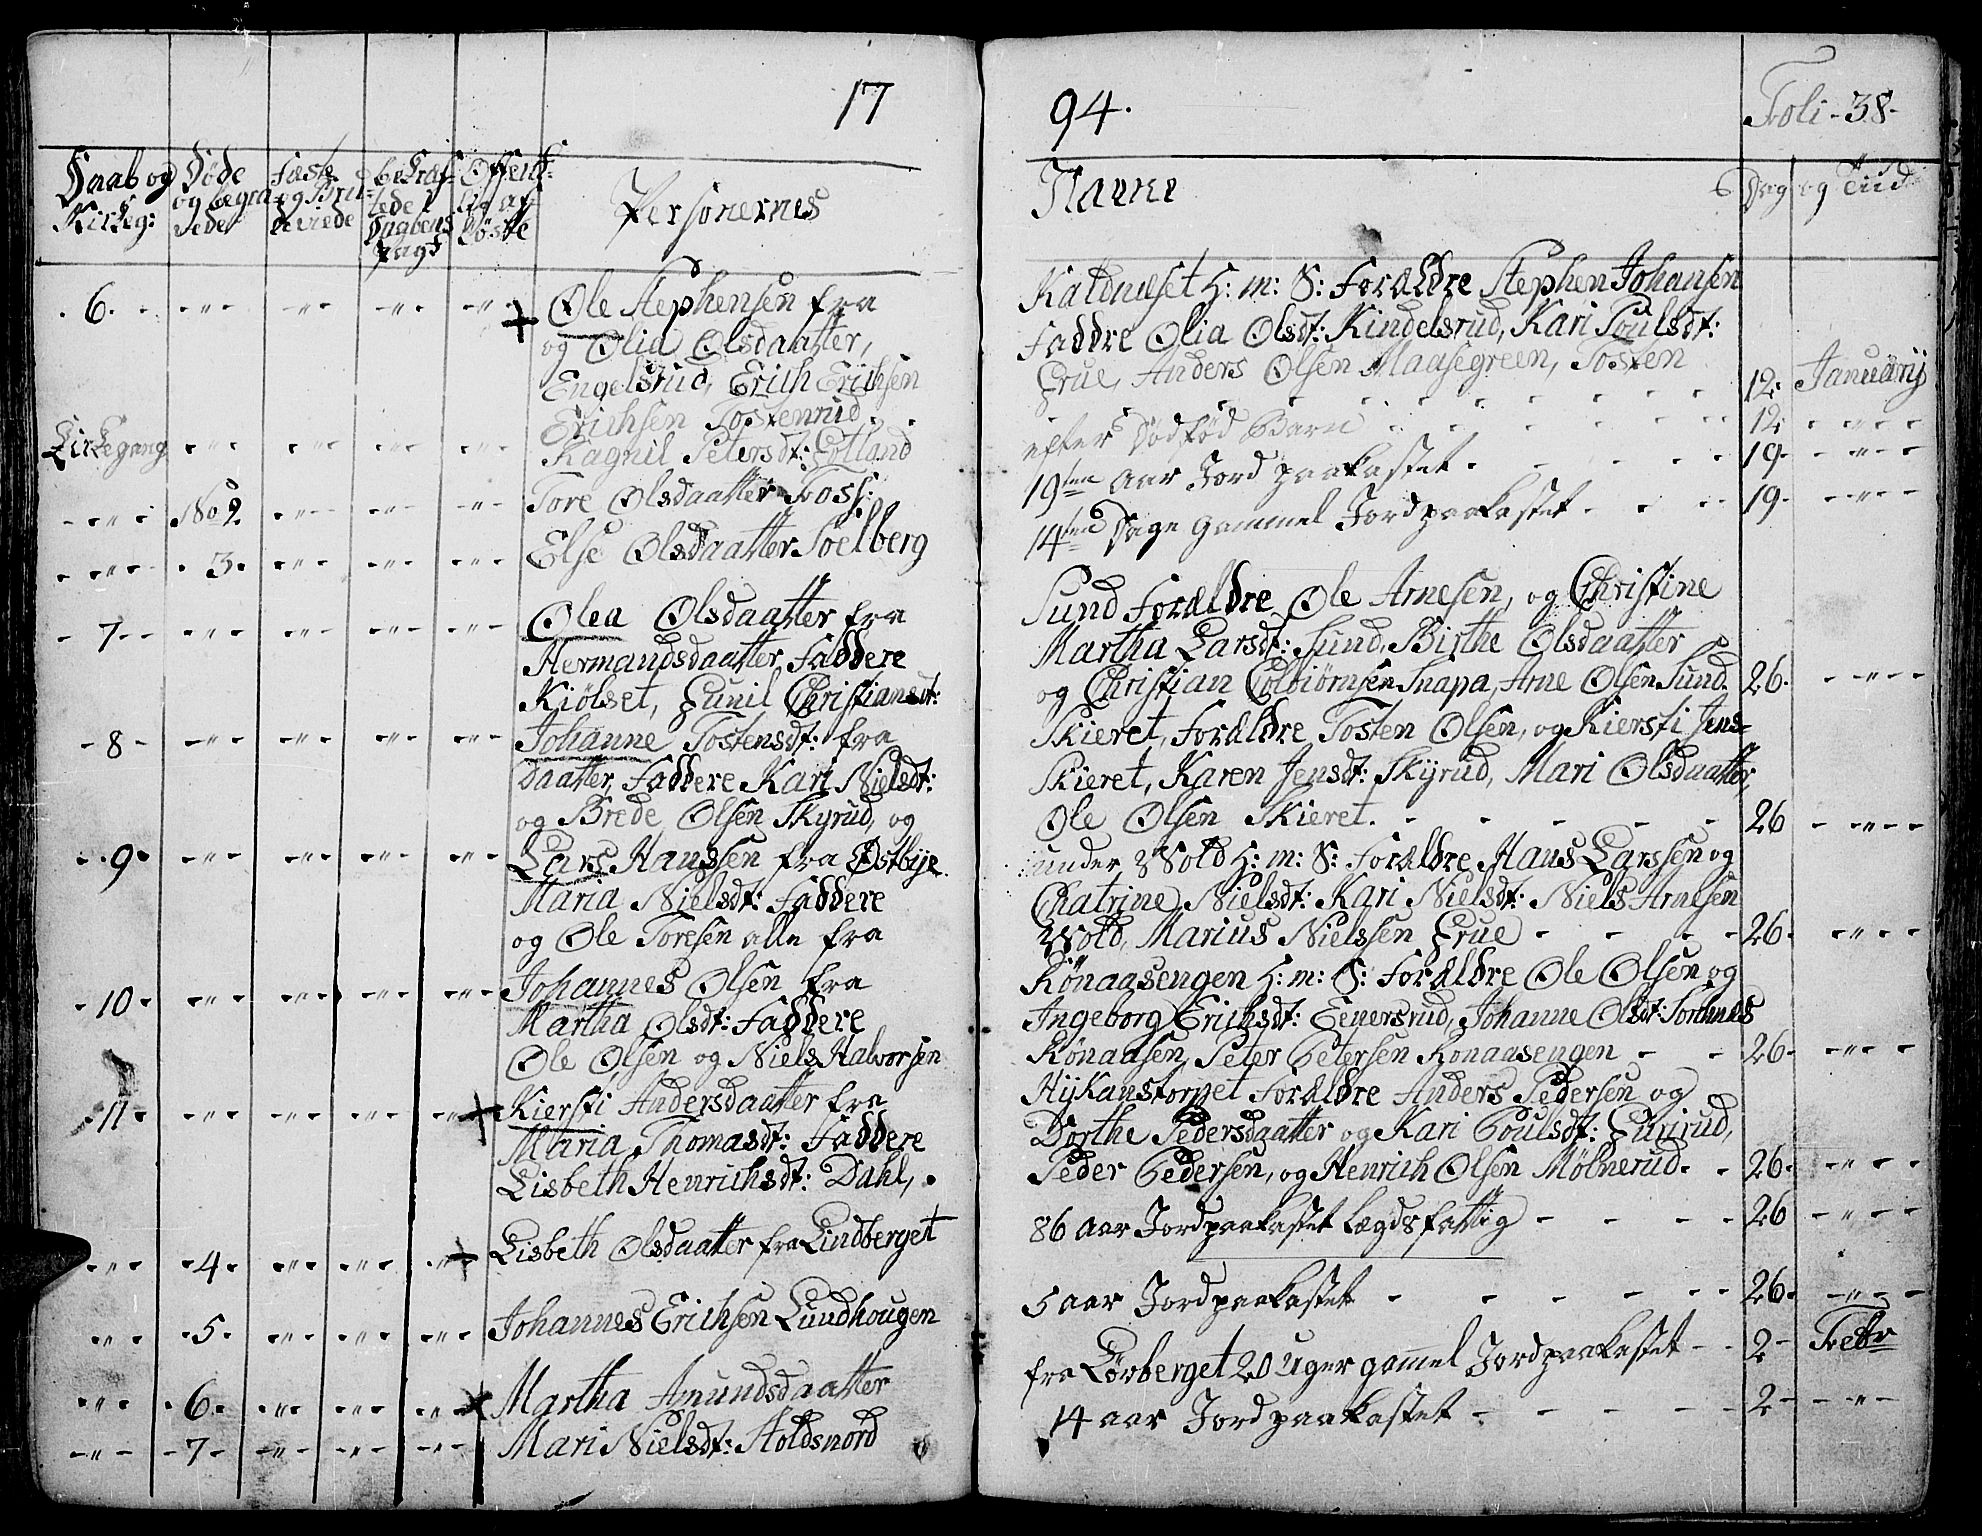 17 94. Foli - 38-
Daab og Kirkeg: Døde og begravede Fæste og Bruteviede bekræftede i Daabens Pagt Offentlig af Løste Personernes Navne Dag og Tiid
6. Ole Stephensen fra Kaldnæset H: m: S: Forældre Stephen Johansen
og Olia Olsdaatter, Faddre Olia Olsdt: Kindelsrud, Kari Poulsdt:
Engelsrud, Erich Erichsen Grue, Anders Olsen Maasegreen, Tosten
Erichsen Tostenrud 12: Januarij
Kirkegang Ragnil Petersdt: Lotland efter Dødfød Barn 12:
No 2. Tore Olsdaatter Foss: 19ten Aar Jord paakastet. 19-
3. Else Olsdaatter Soelberg 14ten Dage Gammel Jordpaakastet 19-
7 Olea Olsdaatter fra Sund Forældre Ole Arnesen, og Christine
Hermandsdaatter, Faddere Martha Larsdt: Sund, Birthe Olsdaatter
Kiølset, Gunil Christiansdt: og Christian Colbiørnsen Snapa, Arne Olsen Sund. 26.
8 Johanne Tostensdt: fra Skieret, Forældre Tosten Olsen, og Kiersti Jens-
daatter, Faddere Kari Nielsdt: Skieret, Karen Jensdt: Skyrud, Mari Olsdaatter,
og Brede Olsen Skyrud, og Ole Olsen Skieret. 26
9 Lars Hanssen fra Østbye under Wold H: m: S: Forældre Hans Larssen og
Maria Nielsdt: Faddere Chatrine Nielsdt: Kari Nielsdt: Niels Arnesen
og Ole Toresen alle fra Wold, Marius Nielssen Grue 26.
10 Johannes Olsen fra Rønaasengen H: m: S: Forældre Ole Olsen og
Martha Olsdt: Faddere Angeborg Erichsdt: Eenersrud, Johanne Olsdt:
Ole Olsen og Niels Halvorsen Rønaasen, Peter Petersen Rønaasengen 26-
11 Kiersti Andersdaatter fra Hykanstorpet Forældre Anders Pedersen og
Maria Thomasdt: Faddere Dorthe Pedersdaatter og Kari Poulsdt:
Lisbeth Henrichsdt: Dahl, Peder Pedersen, og Henrich Olsen Mølnerud. 26.
4. Lisbeth Olsdaatter fra Lindberget 86 aar Jordpaakastet Lægdsfattig 26
5. Johannes Erichsen Lundhougen 5 aar Jordpaakastet 26.
6. Martha Amundsdaatter fra Lørberget 20 Uger gamel Jordpaakastet 2- Febr
7 Mari Nielsdt: Holdsnord 14 aar Jordpaakastet 2-